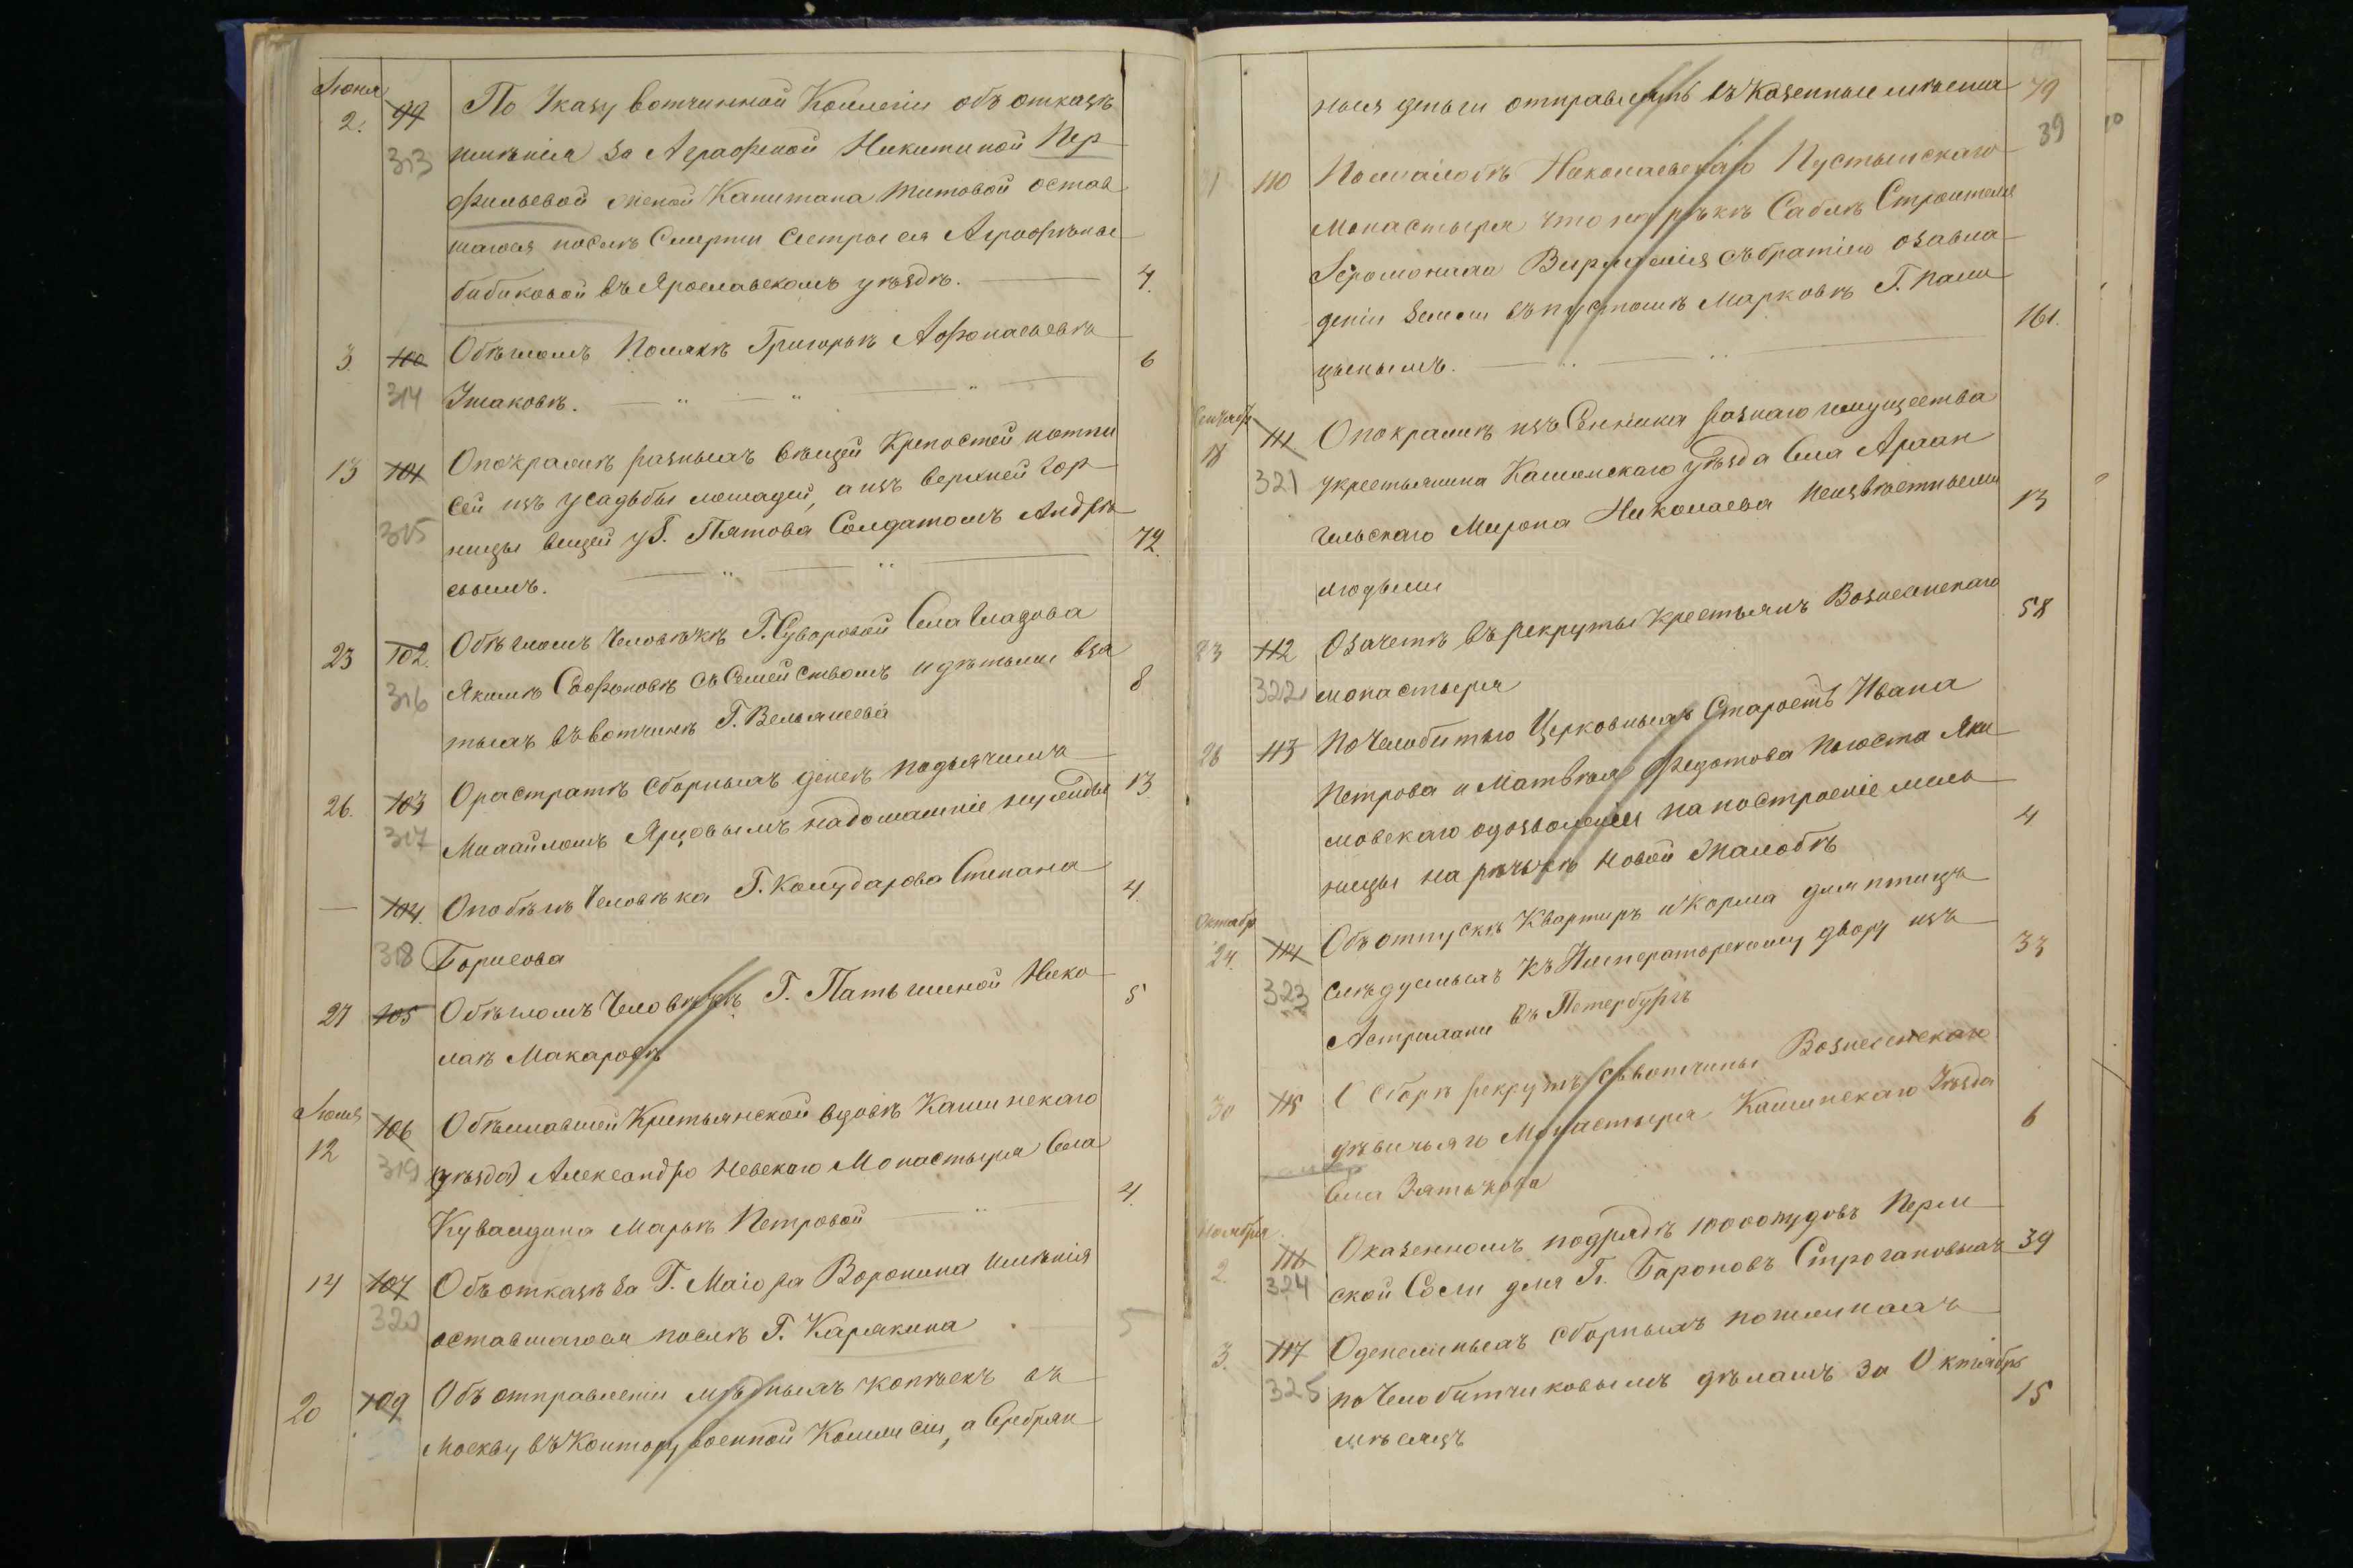 Июня
2. 99 По Указу вотчинной Коллегіи объ отказѣ
313 имѣнія за Аграфеной Никитиной Пер
фильевой женой Капитана Титовой остав
шагося послѣ Смерти Сестры ея Аграфѣны
бибиковой въ Ярославскомъ уѣздѣ. 4.
3. 100 Обѣгломъ Полякѣ Григорьѣ Афонасьевѣ 6
314 Ушаковѣ.
13 101 Опокражѣ разныхъ вѣщей Крепостей иотпи
сей изъ усадьбы лошадей, а изъ верхней гор
315 ницы вещей у Г. Пятова Солдатомъ Андрѣ
евымъ. 72.
23 102. Обѣгломъ Человѣкѣ Г. Суворовой Села Гладова
316 Якимѣ Софоновѣ съ Семействомъ идѣтьми взя 8
тыхъ въвотчинѣ Г. Вельяшева
26. 103 Орастратѣ сборныхъ денегъ подьячимъ 13
317 Михайломъ Ярцовымъ надомашніе нужды
— 104. Опобѣгѣ Человѣка Г. Кожударова Степана 4.
318 Борисова
27 105 Обѣгломъ Человѣкѣ Г. Патычиной Нико 5
лаѣ Макаровѣ
Июля
12 106 Обѣжавшей Крестьянской вдовѣ Кашинскаго
319 (уѣзда) Александро Невскаго Монастыря Села
Куваидина Марьѣ Петровой 4.
14 107 Объотказѣ за Г. Маіора Воронина имѣнія
320 оставшагося послѣ Г. Карякина 5
20 109 Объ отправленіи мѣдныхъ копѣекъ въ
Москву въ Контору военной Коммисіи, а Серебрян
ныя деньги отправлять въ Казенные имѣнія 79
39
1 110 Пожалобѣ Николаевскаго Пустынскаго
Монастыря что на рѣкѣ Сабль Строителя
Іеромонаха Вирилія съ братіею озавла
деніи Земли въ пустошѣ Марковѣ Г. Пали
цынымъ. 161.
Сентябр
18 111 Опокражѣ изъ Сенника разнаго имущества
321 укрестьянина Кашинскаго уѣзда Села Архан
гельскаго Мирона Николаева Неизвѣстными 13
людьми
23 112 Озачетѣ въ рекруты Крестьянъ Вознесенскаго 58
322 монастыря
26 113 По Челобитью Церковныхъ Старостъ Ивана
Петрова и Матвѣя Федотова Погоста Яки
мовскаго одозволеніи на построеніе мель
ницы на речькѣ Новой Жалобѣ 4
Октябр
24. 114 Объ отпускѣ Квартиръ и Корма для птицъ
323 слѣдуемыхъ къ Императорскому двору изъ 33
Астрахани въ Петербургъ
30 115 О Сборѣ рекрутъ съвотчины Вознесенскаго
дѣвичьяго Монастыря Кашинскаго Уѣзда 6
Села Зятькова
Ноября
2. 116 Оказенномъ подрядѣ 10000 пудовъ Перм
324 ской Соли для Гг. Бароновъ Строгановыхъ 39
3. 117 Оденежныхъ сборныхъ пошлинахъ
325 по Челобитчиковымъ дѣламъ за Октябрь 15
мѣсяцъ